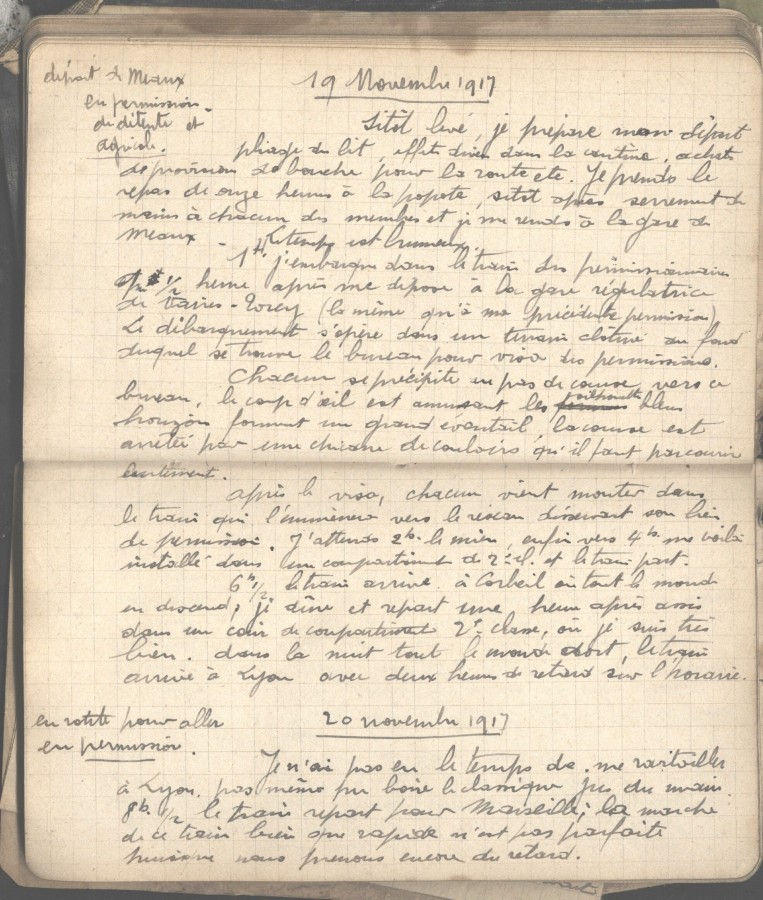 départ de Meaux
en permission
de détente et
agricole.
19 Novembre 1917
Sitôt levé, je prépare mon départ
pliage du lit, effets divers dans la cantine, achats
de provisions de bouche pour la route etc. Je prends le
repas de onze heures à la popote, sitôt après serrement de
mains à chacun des membres et je me rends à la gare de
Meaux - Le temps est brumeux.
1h. j'embarque dans le train des permissionnaires
1/2 heure après me dépose à la gare régulatrice
de Vaires-Torcy (la même qu'à ma précédente permission)
Le débarquement s'opère dans un terrain clôturé au fond
duquel se trouve le bureau pour visa des permissions.
Chacun se précipite en pas de course vers ce
bureau, le coup d'œil est amusant les silhouettes bleu
horizon forment un grand éventail, la course est
arrêtée par une chicane de couloirs qu'il faut parcourir
lentement.
Après le visa, chacun vient monter dans
le train qui l'emmènera vers le réseau desservant son lieu
de permission. J'attends 2h. le mien, enfin vers 4h. me voilà
installé dans un compartiment de 2e cl. et le train part.
6h 1/2 le train arrive à Corbeil où tout le monde
en descend, je dîne et repart une heure après assis
dans un coin de compartiment 2e classe, où je suis très
bien. dans la nuit tout le monde dort, le train
arrive à Lyon avec deux heures de retard sur l'horaire.
en route pour aller
en permission.
20 novembre 1917
Je n'ai pas eu le temps de me ravitailler
à Lyon, pas même pu boire le classique jus du matin.
8h. 1/2 le train repart pour Marseille; la marche
de ce train bien que rapide n'est pas parfaite
puisque nous prenons encore du retard.